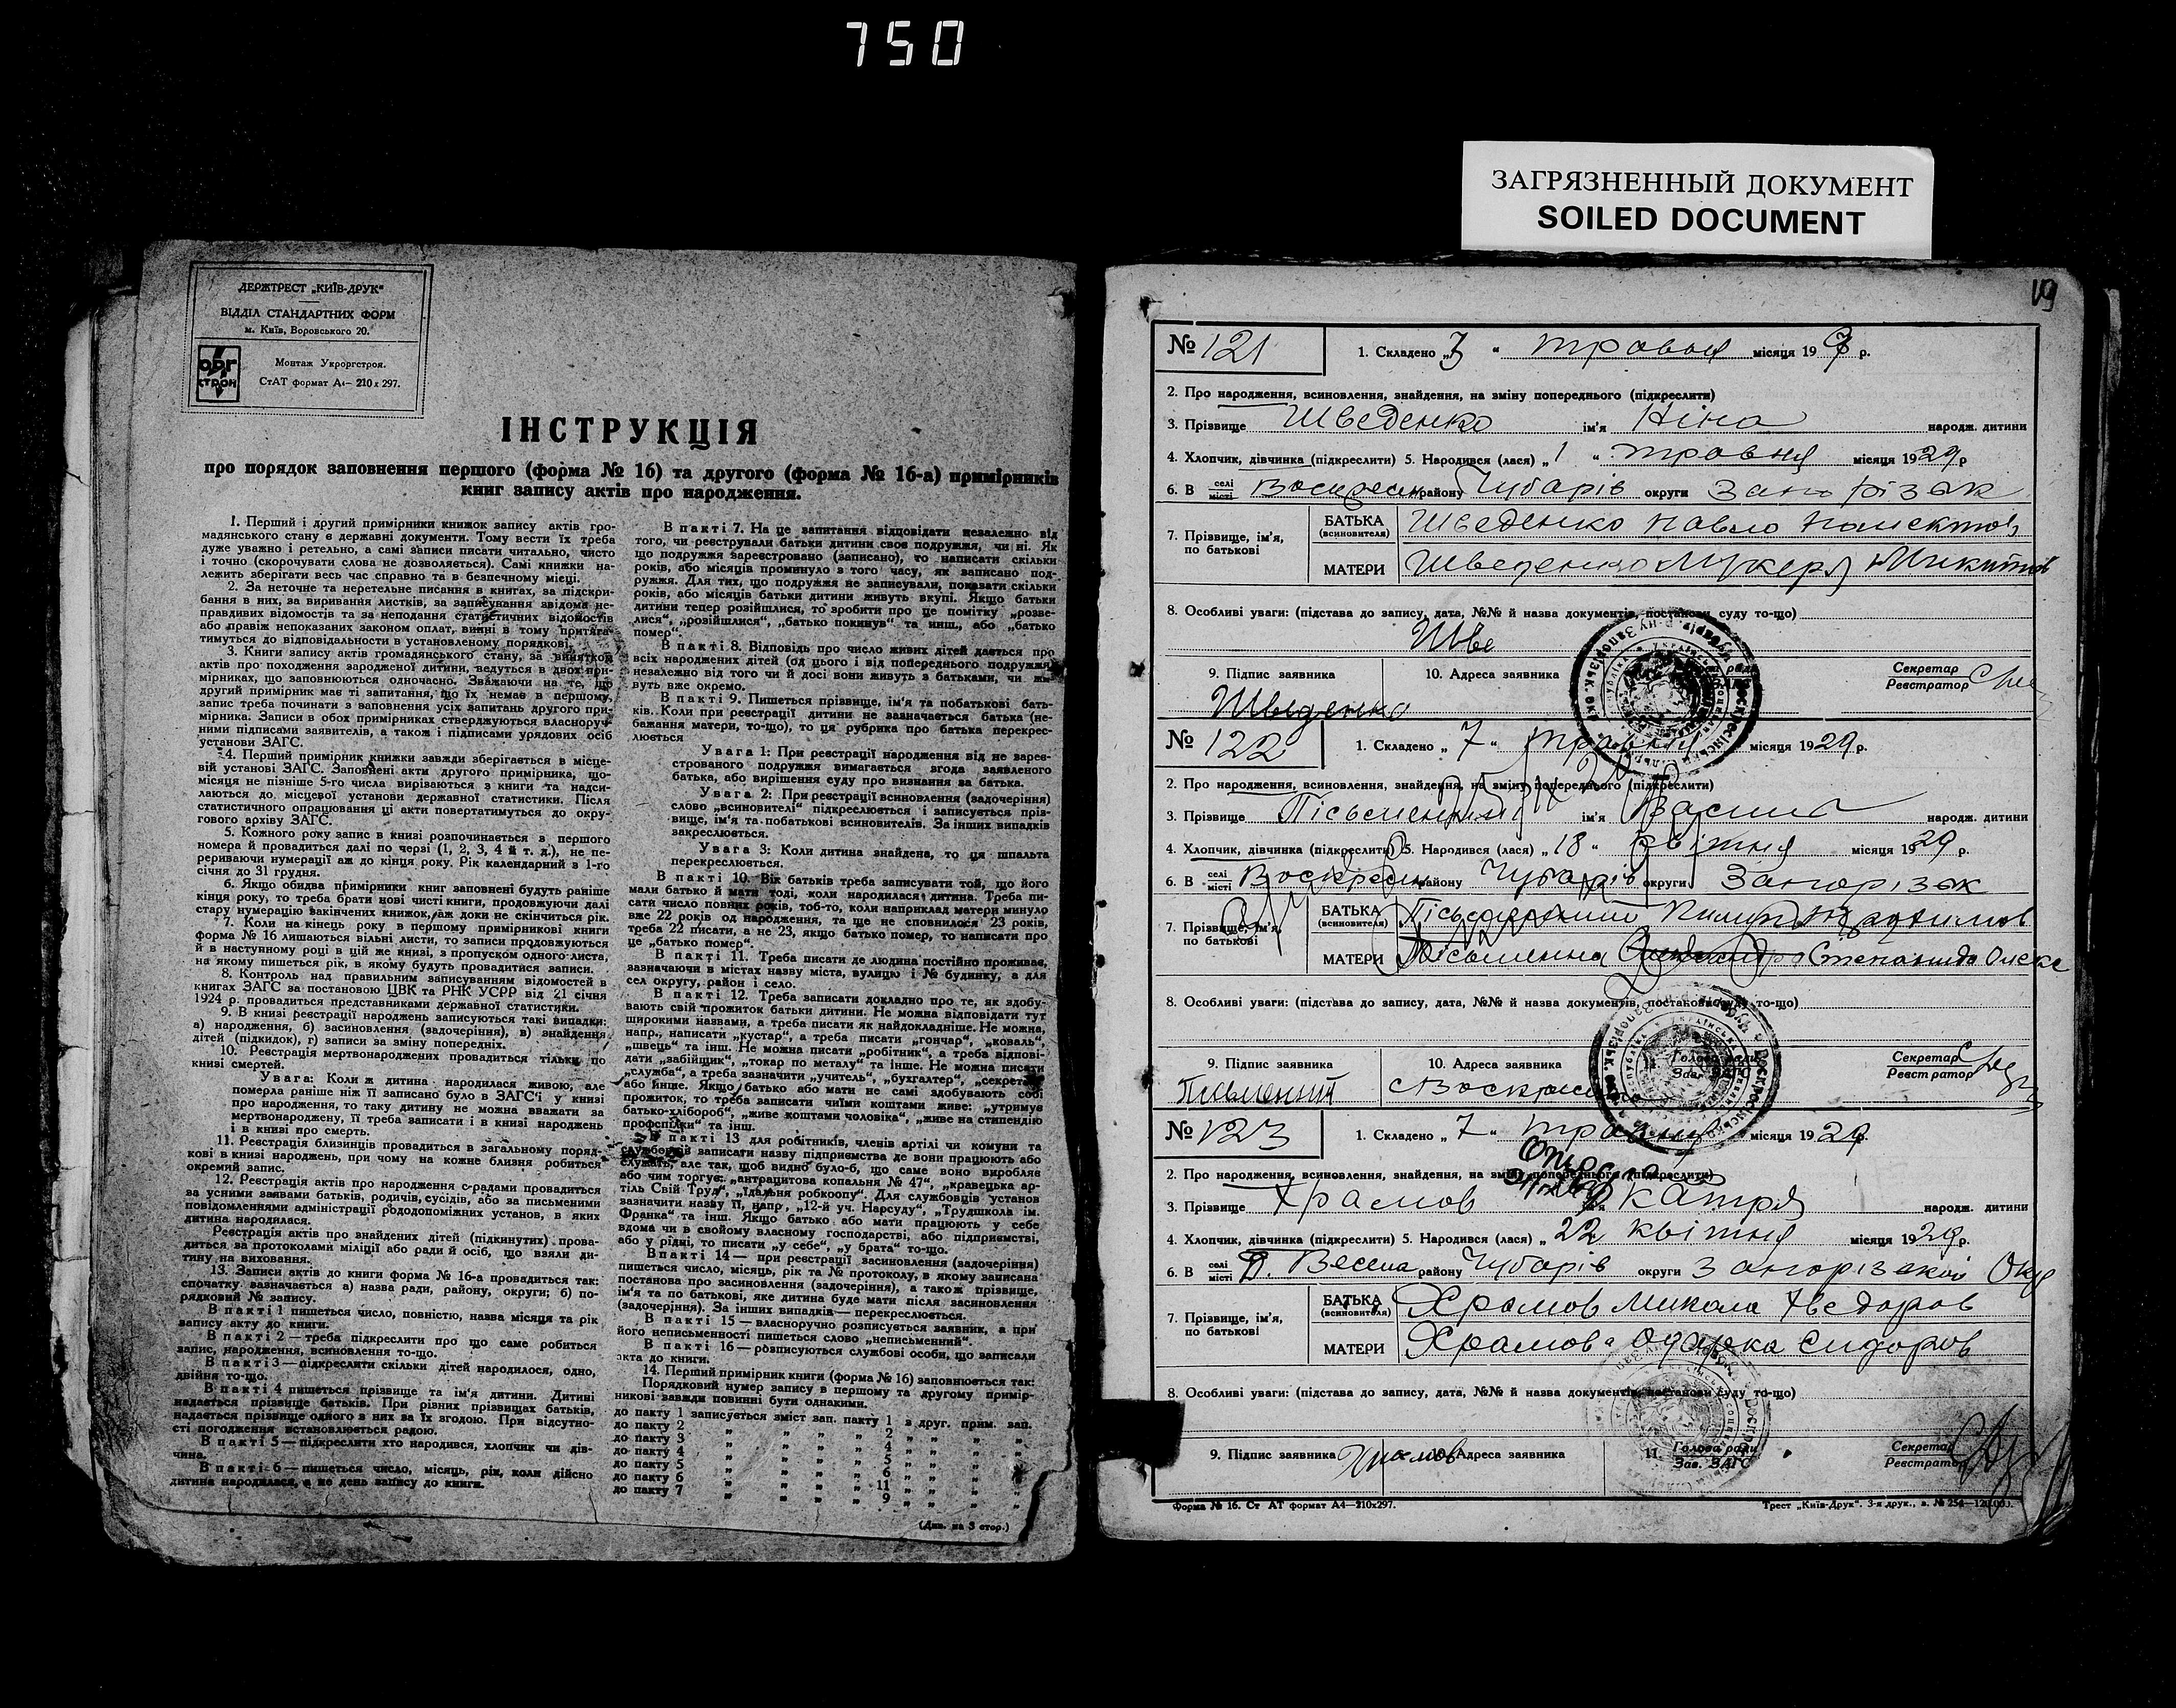 750
ЗАГРЯЗНЕННЫЙ ДОКУМЕНТ
SOILED DOCUMENT
ДЕРЖТРЕСТ „КИЇВ-ДРУК“
ВІДДІЛ СТАНДАРТНИХ ФОРМ
м. Київ, Воровського 20.
ОРГ
СТРОЙ
Монтаж Укроргстроя.
СтАТ формат А4— 210 x 297.
ІНСТРУКЦІЯ
про порядок заповнення першого (форма № 16) та другого (форма № 16-а) примірників
книг запису актів про народження.
1. Перший і другий примірники книжок запису актів гро-
мадянського стану є державні документи. Тому вести їх треба
дуже уважно і ретельно, а самі записи писати читально, чисто
і точно (скорочувати слова не дозволяється). Самі книжки на-
лежить зберігати весь час справно та в безпечному місці.
2. За неточне та неретельне писання в книгах, за підскри-
бання в них, за виривання листків, за записування звідома не-
правдивих відомостів та за неподання статистичних відомостів
або правіж непоказаних законом оплат, винні в тому притяга-
тимуться до відповідальности в установленому порядкові.
3. Книги запису актів громадянського стану, за винятком
актів про походження зародженої дитини, ведуться в двох при-
мірниках, що заповнюються одночасно. Зважаючи на те, що
другий примірник має ті запитання, що їх немає в першому,
запис треба починати з заповнення усіх запитань другого при-
мірника. Записи в обох примірниках стверджуються власноруч-
ними підписами заявителів, а також і підписами урядових осіб
установи ЗАГС.
4. Перший примірник книжки завжди зберігається в місце-
вій установі ЗАГС. Заповнені акти другого примірника, що-
місяця не пізніше 5-го числа вириваються з книги та надси-
лаються до місцевої установи державної статистики. Після
статистичного опрацювання ці акти повертатимуться до окру-
гового архіву ЗАГС.
5. Кожного року запис в книзі розпочинається з першого
номера й провадиться далі по черзі (1, 2, 3, 4 й т. д.), не пе-
рериваючи нумерації аж до кінця року. Рік календарний з 1-го
січня до 31 грудня.
6. Якщо обидва примірники книг заповнені будуть раніше
кінця року, то треба брати нові чисті книги, продовжуючи далі
стару нумерацію закінчених книжок, аж доки не скінчиться рік.
7. Коли на кінець року в першому примірникові книги
форма № 16 лишаються вільні листи, то записи продовжуються
й в наступному році в цій же книзі, з пропуском одного листа,
на якому пишеться рік, в якому будуть провадитися записи.
8. Контроль над правильним записуванням відомостей в
книгах ЗАГС за постановою ЦВК та РНК УСРР від 21 січня
1924 р. провадиться представниками державної статистики.
9. В книзі реєстрації народжень записуються такі випадки:
а) народження, б) засиновлення (задочеріння), в) знайдення
дітей (підкидок), г) записи за зміну попередніх.
10. Реєстрація мертвонароджених провадиться тільки по
книзі смертей.
Увага: Коли ж дитина народилася живою, але
померла раніше ніж її записано було в ЗАГС'і у книзі
про народження, то таку дитину не можна вважати за
мертвонароджену, її треба записати і в книзі народжень
і в книзі про смерть.
11. Реєстрація близинців провадиться в загальному поряд-
кові в книзі народжень, при чому на кожне близня робиться
окремий запис.
12. Реєстрація актів про народження с-радами провадиться
за усними заявами батьків, родичів, сусідів, або за письменними
повідомленнями адміністрації рододопоміжних установ, в яких
дитина народилася.
Реєстрація актів про знайдених дітей (підкинутих) прова-
диться за протоколами міліції або ради й осіб, що взяли ди-
тину на виховання.
13. Записи актів до книги форма № 16-а провадиться так:
спочатку зазначається а) назва ради, району, округи; б) по-
рядковий № запису.
В пакті 1 пишеться число, повністю, назва місяця та рік
запису акту до книги.
В пакті 2 — треба підкреслити про що саме робиться
запис, народження, всиновлення то-що.
В пакті 3 — підкреслити скільки дітей народилося, одно,
двійня то-що.
В пакті 4 пишеться прізвище та ім'я дитини. Дитині
надається прізвище батьків. При різних прізвищах батьків,
надається прізвище одного в них за їх згодою. При відсутно-
сті погодження встановлюється радою.
В пакті 5 — підкреслити хто народився, хлопчик чи дів-
чина.
В пакті 6 — пишеться число, місяць, рік, коли дійсно
дитина народилася, а не день запису до книги.
В пакті 7. На це запитання відповідати незалежно від
того, чи реєстрували батьки дитини своє подружжя, чи ні. Як
що подружжя зареєстровано (записано), то написати скільки
років, або місяців проминуло з того часу, як записано под-
ружжя. Для тих, що подружжя не записували, показати скільки
років, або місяців батьки дитини живуть вкупі. Якщо батьки
дитини тепер розійшлися, то зробити про це помітку „розве-
лися“, „розійшлися“, „батько покинув“ та инш., або „батько
помер“.
В пакті 8. Відповідь про число живих дітей дається про
всіх народжених дітей (од цього і від попереднього подружжя,
незалежно від того чи й досі вони живуть з батьками, чи жи-
вуть вже окремо.
В пакті 9. Пишеться прізвище, ім'я та побатькові бать-
ків. Коли при реєстрації дитини не зазначається батька (не-
бажання матери, то-що), то ця рубрика про батька перекрес-
люється
Увага 1: При реєстрації народження від не зареє-
строваного подружжя вимагається згода заявленого
батька, або вирішення суду про визнання за батька.
Увага 2: При реєстрації всиновлення (задочеріння)
слово „всиновителі“ підкреслюється і записується пріз-
вище, ім'я та побатькові всиновителів. За інших випадків
закреслюється.
Увага 3: Коли дитина знайдена, то ця шпальта
перекреслюється.
В пакті 10. Вік батьків треба записувати той, що його
мали батько й мати тоді, коли народилася дитина. Треба пи-
сати число повних років, тоб-то, коли наприклад матери минуло
вже 22 років од народження, та ще не сповнилося 23 років,
треба 22 писати, а не 23, якщо батько помер, то написати про
це „батько помер“.
В пакті 11. Треба писати де людина постійно проживає,
зазначаючи в містах назву міста, вулицю і № будинку, а для
сел округу, район і село.
В пакті 12. Треба записати докладно про те, як здобу-
вають свій прожиток батьки дитини. Не можна відповідати тут
широкими назвами, а треба писати як найдокладніше. Не можна,
напр., написати „кустар“, а треба писати „гончар“, „коваль“,
„швець“ та інш. Не можна писати „робітник“, а треба відпові-
дати „забійщик“, „токар по металу“ та інше. Не можна писати
„служба“, а треба зазначити „учитель“, „бухгалтер“, „секретар“
або инше. Якщо батько або мати не самі здобувають собі
прожиток, то треба записати чиїми коштами живе: „утримує
батько-хлібороб“, „живе коштами чоловіка“, „живе на стипендію
профспілки“ та інш.
В пакті 13 для робітників, членів артілі чи комуни та
службовців записати назву підприємства де вони працюють або
служать, але так, щоб видно було-б, що саме воно виробляє
або чим торгує: „антрацитова копальня № 47“, „кравецька ар-
тіль Свій Труд“, „їдальня робкоопу“. Для службовців установ
зазначити назву її, напр., „12-й уч. Нарсуду“, „Трудшкола ім.
Франка“ та інш. Якщо батько або мати працюють у себе
вдома чи в свойому власному господарстві, або підприємстві,
або у рідні, то писати „у себе“, „у брата“ то-що.
В пакті 14 — при реєстрації засиновлення (задочеріння)
пишеться число, місяць, рік та № протоколу, в якому записана
постанова про засиновлення (задочеріння), а також прізвище,
ім'я та по батькові, яке дитина буде мати після засиновлення
(задочеріння). За інших випадків — перекреслюється.
В пакті 15 — власноручно розписується заявник, а при
його неписьменності пишеться слово „неписьменний“.
В пакті 16 — розписуються службові особи, що записали
акта до книги.
14. Перший примірник книги (форма № 16) заповнюється так:
Порядковий нумер запису в першому та другому примір-
никові завжди повинні бути однакими.
до пакту 1 записується зміст зап. пакту 1 з друг. прим. зап.
до пакту 2 „ „ „ „ 2 „ „ „
до пакту 3 „ „ „ „ 4 „ „ „
до пакту 4 „ „ „ „ 5 „ „ „
до пакту 5 „ „ „ „ 6 „ „ „
до пакту 6 „ „ „ „ 11 „ „ „
до пакту 7 „ „ „ „ 9 „ „ „
(Див. на 3 стор.)
19
№ 121 1. Складено „7“ травня місяця 19 р.
2. Про народження, всиновлення, знайдення, на зміну попереднього (підкреслити)
3. Прізвище Шведенко ім'я Ніна народж. дитини
4. Хлопчик, дівчинка (підкреслити) 5. Народився (лася) „1“ травня місяця 1929 р
6. В селі місті Воскресен району Чубарів округи Запорізьк
7. Прізвище, ім'я, по батькові БАТЬКА (всиновителя) Шведенко Павло
МАТЕРИ Шведенко Микитов
8. Особливі уваги: (підстава до запису, дата, №№ й назва документів, постанови суду то-що)
Шве
9. Підпис заявника 10. Адреса заявника Секретар Реєстратор
Шведенко
№ 122 1. Складено „7“ травня місяця 1929 р.
2. Про народження, всиновлення, знайдення, на зміну попереднього (підкреслити)
3. Прізвище Пісьменний ім'я Василь народж. дитини
4. Хлопчик, дівчинка (підкреслити) 5. Народився (лася) „18“ квітня місяця 1929 р.
6. В селі місті Воскресен району Чубарів округи Запорізьк
7. Прізвище, ім'я, по батькові БАТЬКА (всиновителя) Пісьменний Пилип
МАТЕРИ Пісьменна Степанида Олекс
8. Особливі уваги: (підстава до запису, дата, №№ й назва документів, постанови суду то-що)
9. Підпис заявника 10. Адреса заявника 11. Голова ради Зав. ЗАГС Секретар Реєстратор
Письменний Воскресен
№ 123 1. Складено „7“ травня місяця 1929 р.
2. Про народження, всиновлення, знайдення, на зміну попереднього (підкреслити)
3. Прізвище Храмов ім'я Катря народж. дитини
4. Хлопчик, дівчинка (підкреслити) 5. Народився (лася) „22 квітня місяця 1929 р.
6. В селі місті Весела району Чубарів округи Запорізької Окр
7. Прізвище, ім'я, по батькові БАТЬКА (всиновителя) Храмов Микола Хведоров
МАТЕРИ Храмова Одарка Сидоров
8. Особливі уваги: (підстава до запису, дата, №№ й назва документів, постанови суду то-що)
9. Підпис заявника Храмов 10. Адреса заявника 11. Голова ради Зав. ЗАГС Секретар Реєстратор
Форма № 16. Ст АТ формат А4—210x297.
Трест „Київ-Друк“. 3-я друк., з. № 254—120.000.